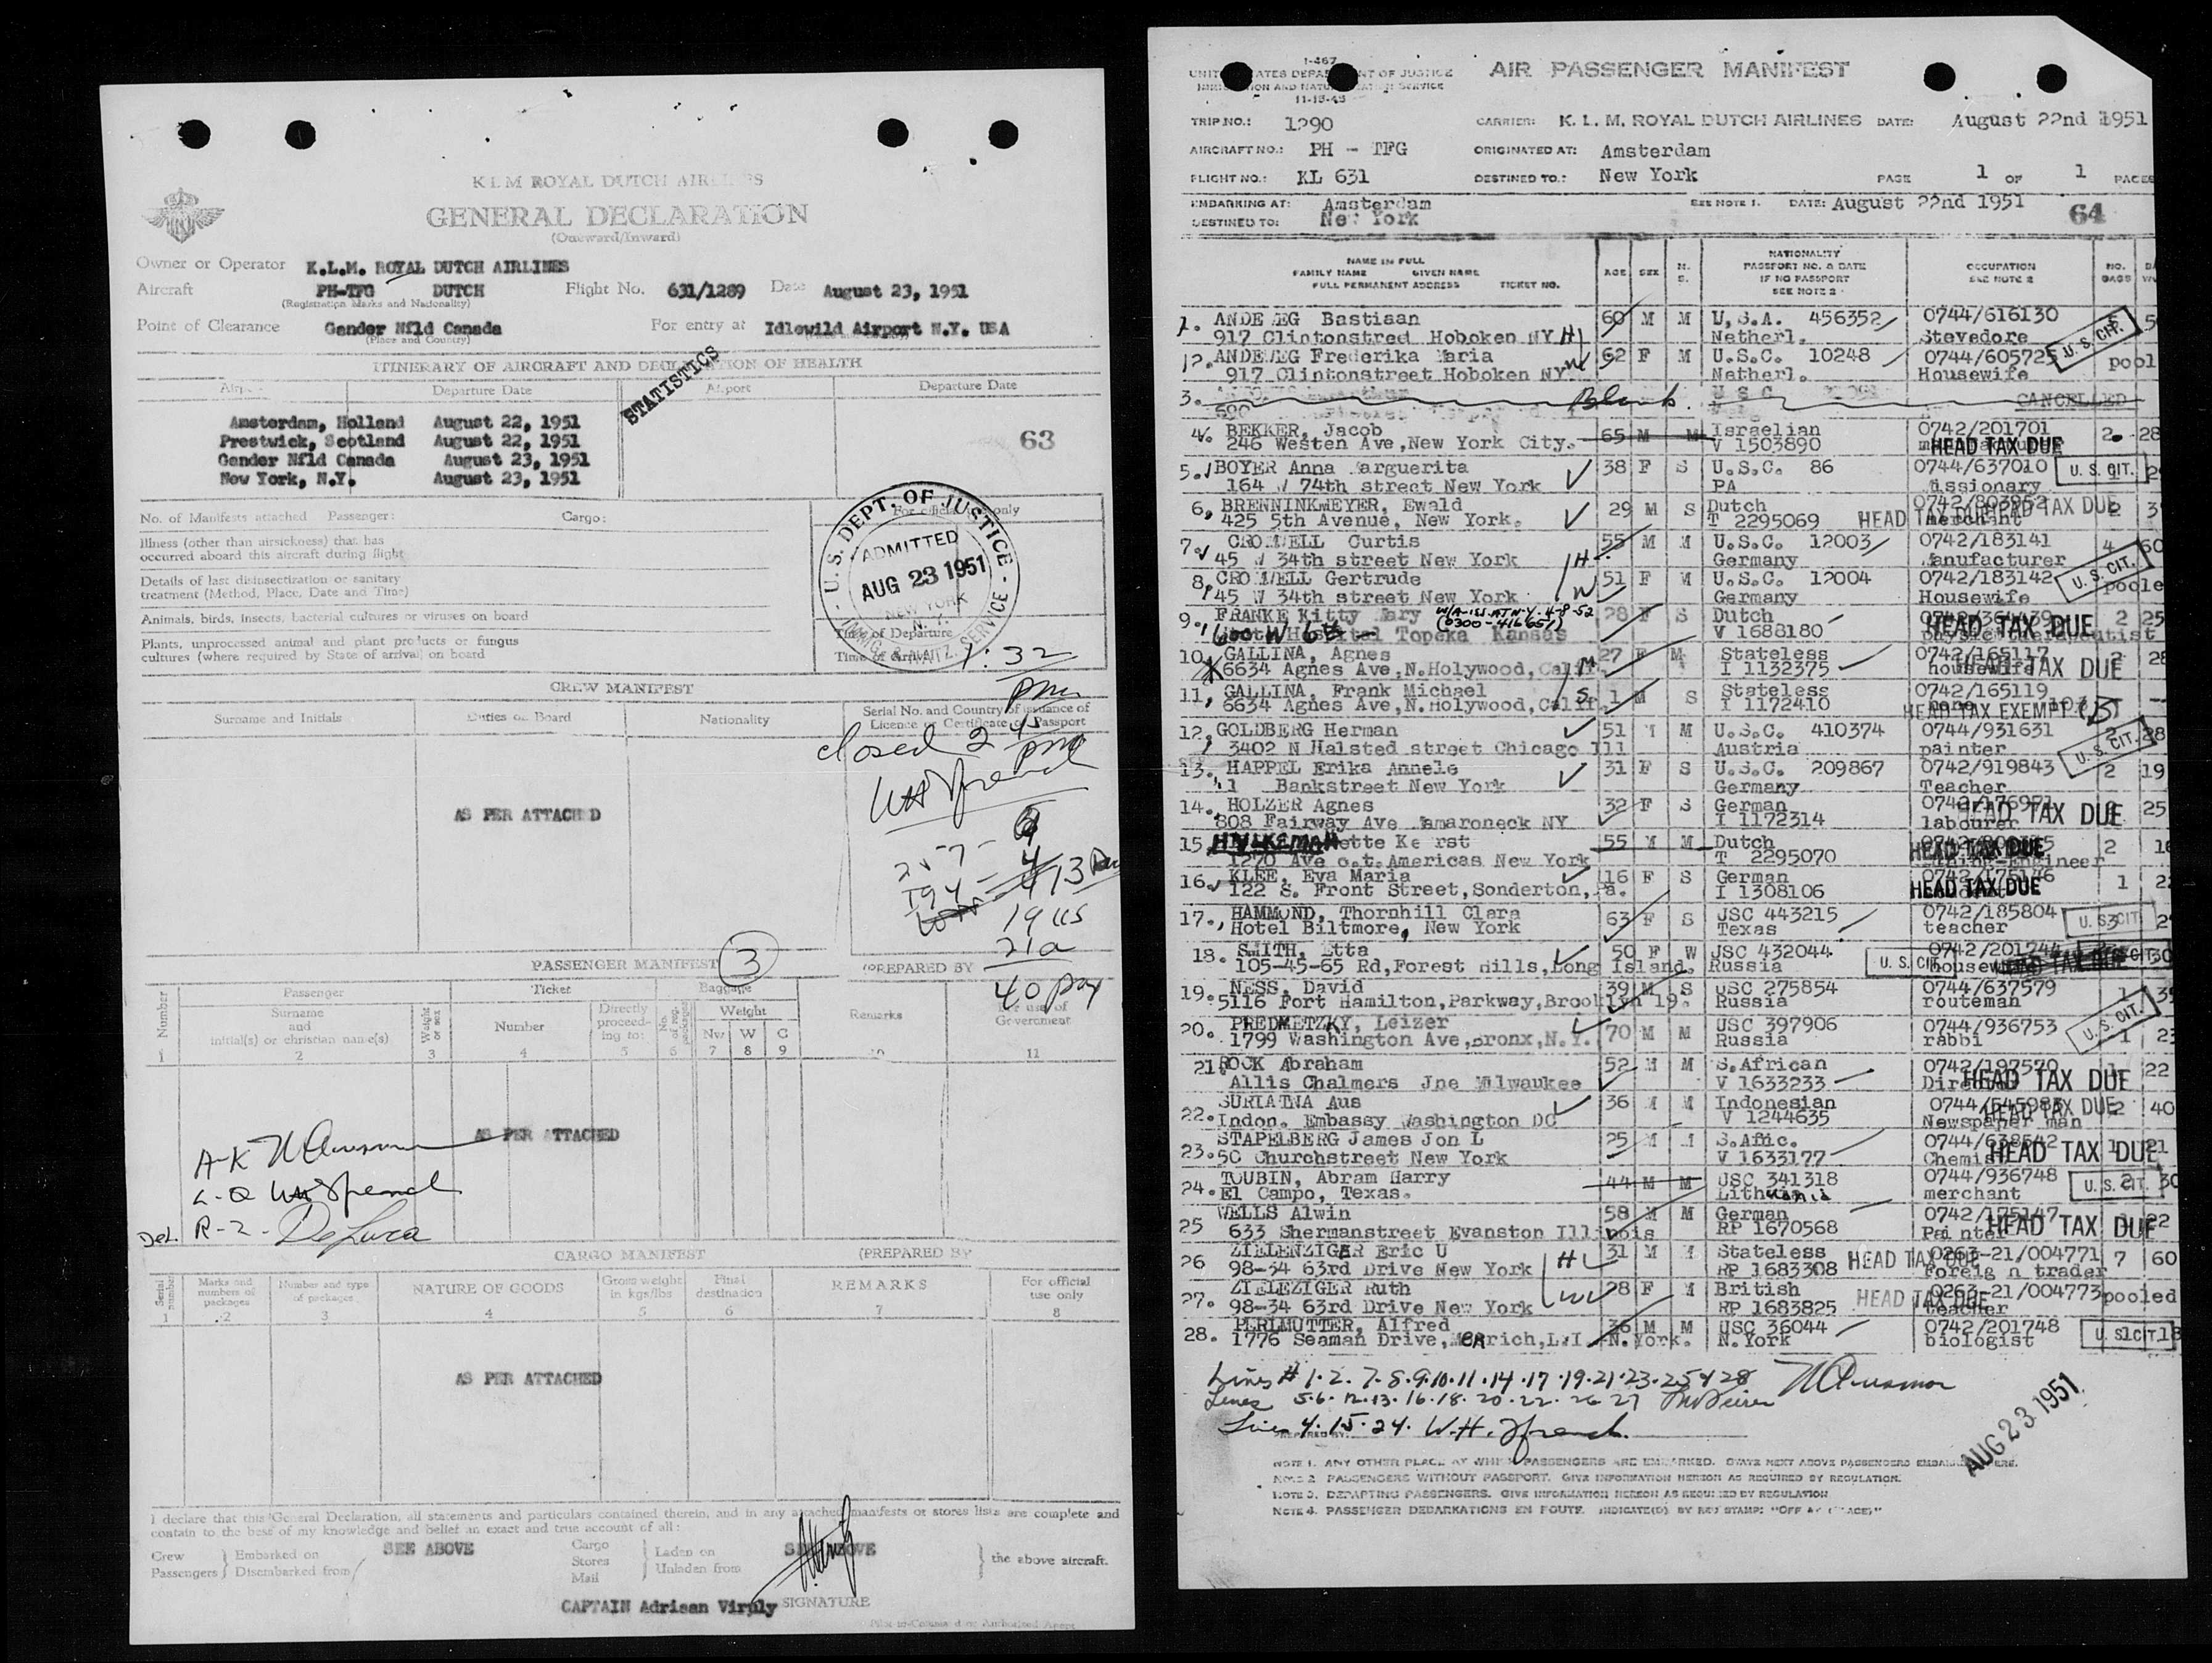 K L M ROYAL DUTCH AIRLINES
GENERAL DECLARATION
(Outward/Inward)
Owner or Operator K.L.M. ROYAL DUTCH AIRLINES
Aircraft PH-TFG DUTCH Flight No. 631/1289 Date August 23, 1951
(Registration Marks and Nationality)
Point of Clearance Gander Nfld Canada For entry at Idlewild Airport N.Y. USA
(Place and Country)
STATISTICS
ITINERARY OF AIRCRAFT AND DECLARATION OF HEALTH
Departure Date Airport Departure Date
Amsterdam, Holland August 22, 1951
Prestwick, Scotland August 22, 1951
Gander Nfld Canada August 23, 1951
New York, N.Y. August 23, 1951
63
No. of Manifests attached Passenger: Cargo: For official use only
Illness (other than airsickness) that has
occurred aboard this aircraft during flight
Details of last disinsectization or sanitary
treatment (Method, Place, Date and Time)
Animals, birds, insects, bacterial cultures or viruses on board
Plants, unprocessed animal and plant products or fungus
cultures (where required by State of arrival) on board
U.S. DEPT. OF JUSTICE
ADMITTED
AUG 23 1951
NEW YORK
N. Y.
Time of Departure
Time of Arrival 1:32
pm
CREW MANIFEST
Surname and Initials Duties on Board Nationality Serial No. and Country of issuance of
Licence or Certificate or Passport
closed 2 45 pm
WH French
AS PER ATTACHED
19 US
21 a
40 pax
PASSENGER MANIFEST 3 (PREPARED BY
Number Passenger Ticket Baggage
Surname
and
initial(s) or christian name(s) Weight or sex Number Directly proceeding to: No. of reg. packages Weight Nw W C Remarks For use of Government
1 2 3 4 5 6 7 8 9 10 11
AS PER ATTACHED
CARGO MANIFEST (PREPARED BY
Serial number Marks and numbers of packages Number and type of packages NATURE OF GOODS Gross weight in kgs/lbs Final destination REMARKS For official use only
1 2 3 4 5 6 7 8
AS PER ATTACHED
I declare that this General Declaration, all statements and particulars contained therein, and in any attached manifests or stores lists are complete and
contain to the best of my knowledge and belief an exact and true account of all:
Crew Embarked on SEE ABOVE Cargo Laden on SEE ABOVE the above aircraft.
Passengers Disembarked from Stores Unladen from
Mail
CAPTAIN Adriaan Viruly SIGNATURE
Pilot in Command or Authorized Agent
I-467
UNITED STATES DEPARTMENT OF JUSTICE
IMMIGRATION AND NATURALIZATION SERVICE
11-15-45
AIR PASSENGER MANIFEST
TRIP NO.: 1290 CARRIER: K. L. M. ROYAL DUTCH AIRLINES DATE: August 22nd 1951
AIRCRAFT NO.: PH - TFG ORIGINATED AT: Amsterdam
FLIGHT NO.: KL 631 DESTINED TO.: New York PAGE 1 OF 1 PAGES
EMBARKING AT: Amsterdam SEE NOTE 1. DATE: August 22nd 1951
DESTINED TO: New York 64
NAME IN FULL
FAMILY NAME GIVEN NAME
FULL PERMANENT ADDRESS TICKET NO. AGE SEX M. S. NATIONALITY
PASSPORT NO. & DATE
IF NO PASSPORT
SEE NOTE 2 OCCUPATION
SEE NOTE 2 NO. BAGS
1. Bastiaan 60 M M U.S.A. 456352 0744/616130
917 Clintonstred Hoboken NY H Netherl. Stevedore U. S. CIT.
2. Frederika Maria 62 F M U.S.C. 10248 0744/605725
917 Clintonstreet Hoboken NY W Netherl. Housewife pool
3. Blank. CANCELLED
4. BEKKER, Jacob 65 M M Israelian 0742/201701 2 28
246 Westen Ave, New York City. V 1503890 HEAD TAX DUE
5. BOYER Anna Marguerita 38 F S U.S.C. 86 0744/637010 U. S. CIT.
164 W 74th street New York PA Missionary
6. BRENNINKMEYER, Ewald 29 M S Dutch 2
425 5th Avenue, New York. T 2295069 HEAD TAX DUE merchant
7. CROMWELL Curtis 55 M M U.S.C. 12003 0742/183141 4 60
45 W 34th street New York H Germany Manufacturer
8. CROMWELL Gertrude 51 F M U.S.C. 12004 0742/183142 U. S. CIT.
45 W 34th street New York W Germany Housewife pooled
9. FRANKE Kitty Mary W/A-iss. AT N.Y. 4-8-52 28 F S Dutch HEAD TAX DUE 2 25
(0300-416651) Topeka Kansas V 1688180
10. GALLINA, Agnes 27 F M Stateless 0742/165117 2 28
6634 Agnes Ave, N.Holywood, Calif. I 1132375 housewife HEAD TAX DUE
11. GALLINA, Frank Michael 1 M S Stateless 0742/165119
6634 Agnes Ave, N.Holywood, Calif. I 1172410 none HEAD TAX EXEMPT
12. GOLDBERG Herman 51 M M U.S.C. 410374 0744/931631 28
3402 N Halsted street Chicago Ill Austria painter U. S. CIT.
13. HAPPEL Erika Annele 31 F S U.S.C. 209867 0742/919843 2 19
1 Bankstreet New York Germany Teacher
14. HOLZER Agnes 32 F S German HEAD TAX DUE 25
808 Fairway Ave Mamaroneck NY I 1172314 labourer
15. 55 M M Dutch HEAD TAX DUE 2
1270 Ave o.t. Americas New York T 2295070
16. KLEE, Eva Maria 16 F S German 0742/175146 1
122 S. Front Street, Sonderton, Pa. I 1308106 HEAD TAX DUE
17. HAMMOND, Thornhill Clara 63 F S USC 443215 0742/185804 U. S. CIT.
Hotel Biltmore, New York Texas teacher
18. SMITH, Etta 50 F W USC 432044 0742/201744
105-45-65 Rd, Forest Hills, Long Island, Russia U. S. CIT. housewife
19. NESS, David 39 M S USC 275854 0744/637579 1
5116 Fort Hamilton, Parkway, Brooklyn 19. Russia routeman
20. PREDMETZKY, Leizer 70 M M USC 397906 0744/936753 U. S. CIT.
1799 Washington Ave, Bronx, N.Y. Russia rabbi 1 23
21. ROCK Abraham 52 M M S.African 0742/197570 22
Allis Chalmers Jne Milwaukee V 1633233 HEAD TAX DUE
22. SURIATNA Aus 36 M M Indonesian 2 40
Indon. Embassy Washington DC V 1244635 Newspaper man HEAD TAX DUE
23. STAPELBERG James Jon L 25 M M S.Afric. 0744/638642 1 21
50 Churchstreet New York V 1633177 Chemist HEAD TAX DUE
24. TOUBIN, Abram Harry 44 M M USC 341318 0744/936748 2 30
El Campo, Texas. Lithuania merchant U. S. CIT.
25 WELLS Alwin 58 M M German 0742/175147 22
633 Shermanstreet Evanston Illinois RP 1670568 Painter HEAD TAX DUE
26 ZIELENZIGER Eric U 31 M M Stateless 0263-21/004771 7 60
98-34 63rd Drive New York H RP 1683308 HEAD TAX DUE Foreign trader
27. ZIELEZIGER Ruth 28 F M British 0263-21/004773 pooled
98-34 63rd Drive New York W RP 1683825 HEAD TAX DUE teacher
28. PERLMUTTER, Alfred 36 M M USC 36044 0742/201748 U. S. CIT. 18
1776 Seaman Drive, Merrich, L.I N.York. N.York biologist
Lines # 1·2·7·8·9·10·11·14·17·19·21·23·25 & 28
Lines 5·6·12·13·16·18·20·22·26 27
Lines 4·15·24. W.H. French
AUG 23 1951
PREPARED BY
NOTE 1. ANY OTHER PLACE AT WHICH PASSENGERS ARE EMBARKED. STATE NEXT ABOVE PASSENGERS EMBARKING THERE.
NOTE 2. PASSENGERS WITHOUT PASSPORT. GIVE INFORMATION HEREON AS REQUIRED BY REGULATION.
NOTE 3. DEPARTING PASSENGERS. GIVE INFORMATION HEREON AS REQUIRED BY REGULATION
NOTE 4. PASSENGER DEBARKATIONS EN ROUTE. INDICATE(D) BY RED STAMP: "OFF AT (PLACE)"